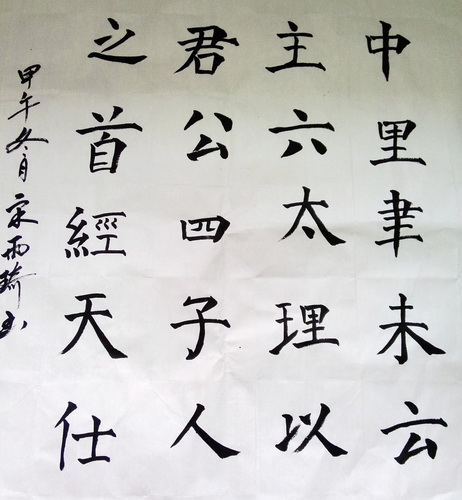 中里聿未云
主六太理以
君公四子人
之首經天仕
甲午冬月宋雨琦书